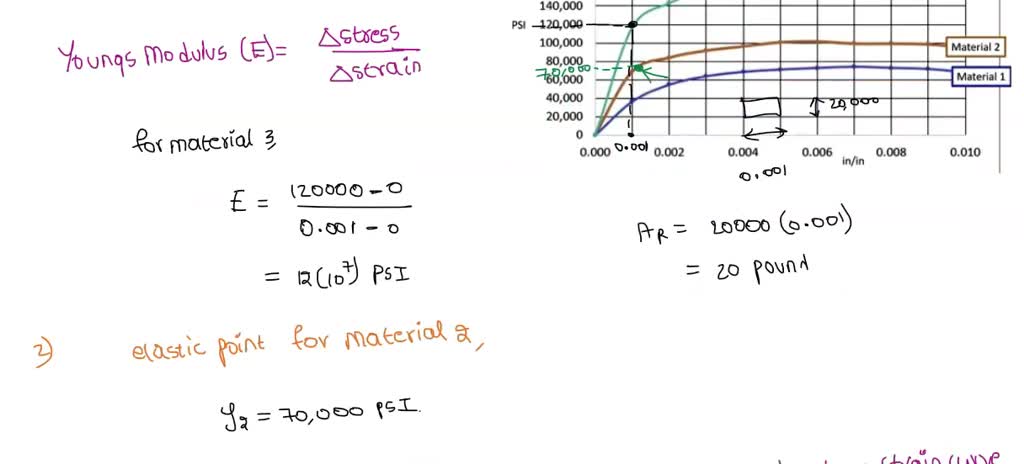 Youngs Modulus (E) = Δstress / Δstrain
for material 3,
E = 120000 - 0 / 0.001 - 0
= 12(10⁷) PSI
2) elastic point for material 2,
y₂ = 70,000 PSI.
140,000
PSI 120,000
100,000
Material 2
70,000 80,000
60,000
Material 1
40,000
20,000
20,000
0
0.000 0.001 0.002 0.004 0.006 0.008 0.010
in/in
0.001
A_R = 20000 (0.001)
= 20 pound